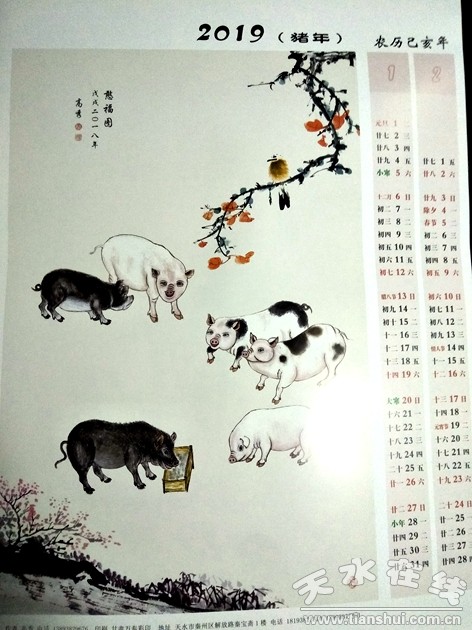 2019（猪年）
农历己亥年
憨福图
戊戌二〇一八年
高秀
1 2
元旦 1 二
廿七 2 三
廿八 3 四
廿九 4 五 廿七 1 五
小寒 5 六 廿八 2 六
十二月 6 日 廿九 3 日
初二 7 一 除夕 4 一
初三 8 二 春节 5 二
初四 9 三 初二 6 三
初五 10 四 初三 7 四
初六 11 五 初四 8 五
初七 12 六 初五 9 六
腊八节 13 日 初六 10 日
初九 14 一 初七 11 一
初十 15 二 初八 12 二
十一 16 三 初九 13 三
十二 17 四 情人节 14 四
十三 18 五 十一 15 五
十四 19 六 十二 16 六
大寒 20 日 十三 17 日
十六 21 一 十四 18 一
十七 22 二 元宵节 19 二
十八 23 三 十六 20 三
十九 24 四 十七 21 四
二十 25 五 十八 22 五
廿一 26 六 十九 23 六
廿二 27 日 二十 24 日
小年 28 一 廿一 25 一
廿四 29 二 廿二 26 二
廿五 30 三 廿三 27 三
廿六 31 四 廿四 28 四
天水在线
www.tianshui.com.cn
地址 天水市秦州区解放路秦宝斋1楼 电话